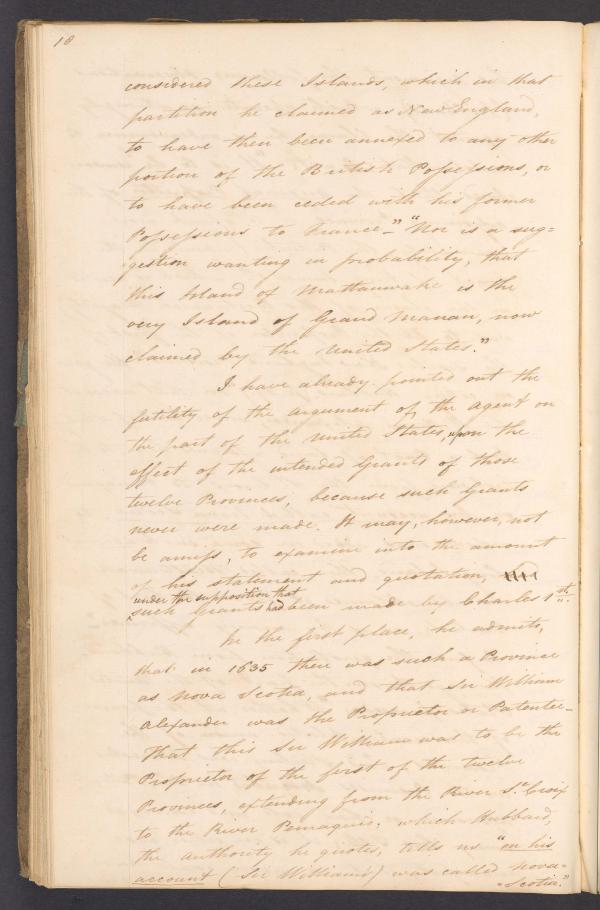 18
considered these Islands, which in that
partition he claimed as New England,
to have then been annexed to any other
portion of the British Possessions, or
to have been ceded with his former
Possessions to France—" "Nor is a sug=
gestion wanting in probability, that
this Island of Mattanwake is the
very Island of Grand Manan, now
claimed by the United States."
I have already pointed out the
futility of the argument of the Agent on
the part of the United States, upon the
effect of the intended Grants of those
twelve Provinces, because such Grants
never were made. It may, however, not
be amiss, to examine into the amount
of his statement and quotation,
under the supposition that
such Grants had been made by Charles 1st.
In the first place, he admits,
that in 1635 there was such a Province
as Nova Scotia, and that Sir William
Alexander was the Proprietor or Patentee—
That this Sir William was to be the
Proprietor of the first of the twelve
Provinces, extending from the River St. Croix
to the River Pemaquid; which Hubbard,
the authority he quotes, tells us "on his
account (Sir William's) was called Nova-
-Scotia."